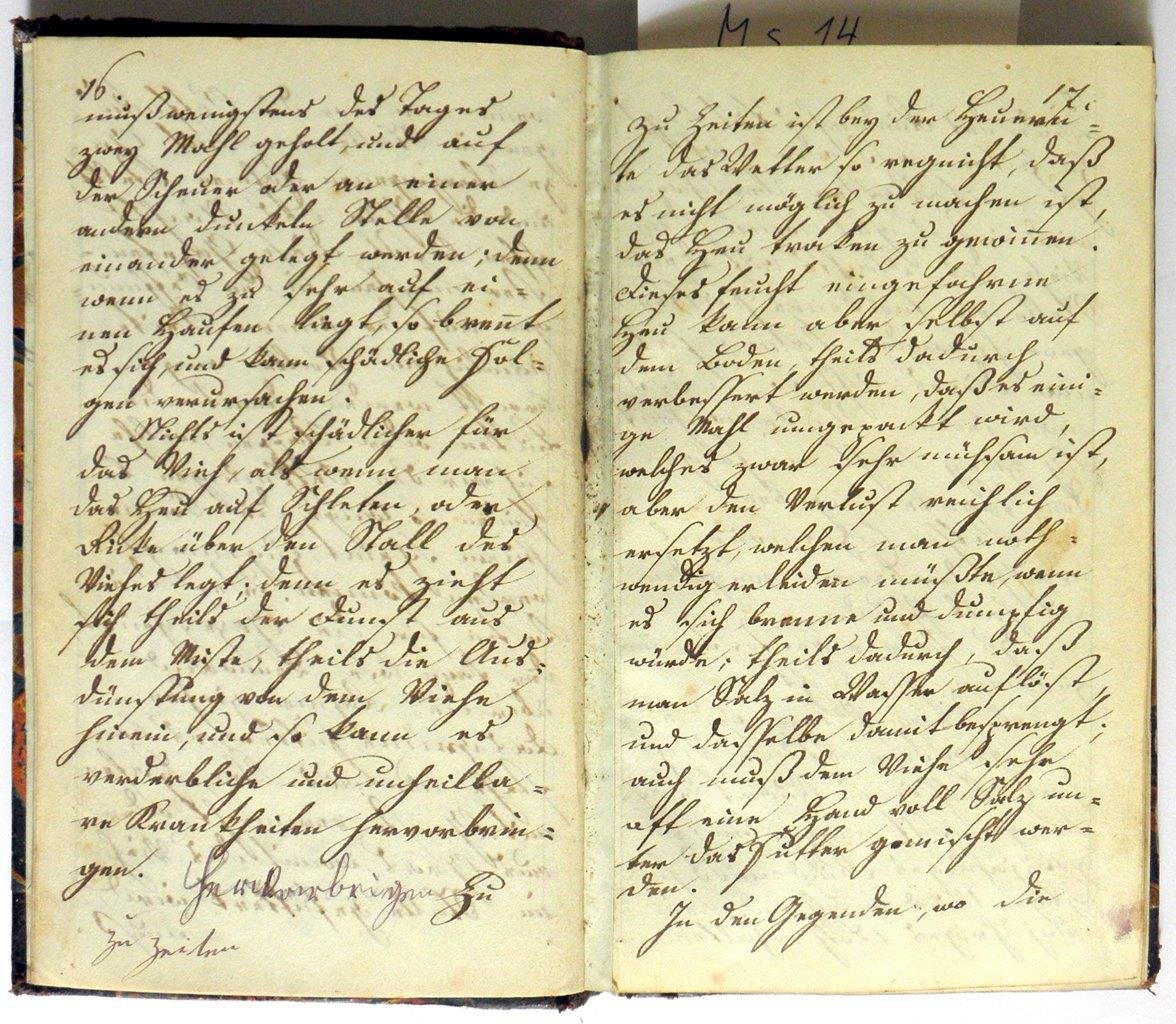 Ms 14
16.
muß wenigstens des Tages
zwey Mahl geholt, und auf
der Scheuer oder an einer
andern dunkeln Stelle von
einander gelegt werden; denn
wenn es zu sehr auf ei=
nen Haufen liegt, so brennt
es sich, und kann schädliche Fol=
gen verursachen.
Nichts ist schädlicher für
das Vieh, als wenn man
das Heu auf Schleten, oder
Ricke über den Stall des
Viehes legt; denn es zieht
sich theils der Dunst aus
dem Miste, theils die Aus=
dünstung von dem Viehe
hinein, und so kann es
verderbliche und unheilba=
re Krankheiten hervorbrin=
gen.
hervorbrigen Zu
zu Zeiten
17.
Zu Zeiten ist bey der Heuern=
te das Wetter so regnicht, daß
es nicht möglich zu machen ist,
das Heu traken zu gewinnen.
Dieses feucht eingefahrne
Heu kann aber selbst auf
dem Boden, theils dadurch
verbessert werden, daß es eini=
ge Mahl umgepackt wird,
welches zwar sehr mühsam ist,
aber den Verlust reichlich
ersetzt, welchen man noth=
wendig erleiden müßte, wenn
es sich brenne und dumpfig
würde; theils dadurch, daß
man Salz in Wasser auflöst,
und dasselbe damit besprengt;
auch muß dem Viehe sehr
oft eine Hand voll Salz un=
ter das Futter gemischt wer=
den.
In den Gegenden, wo die